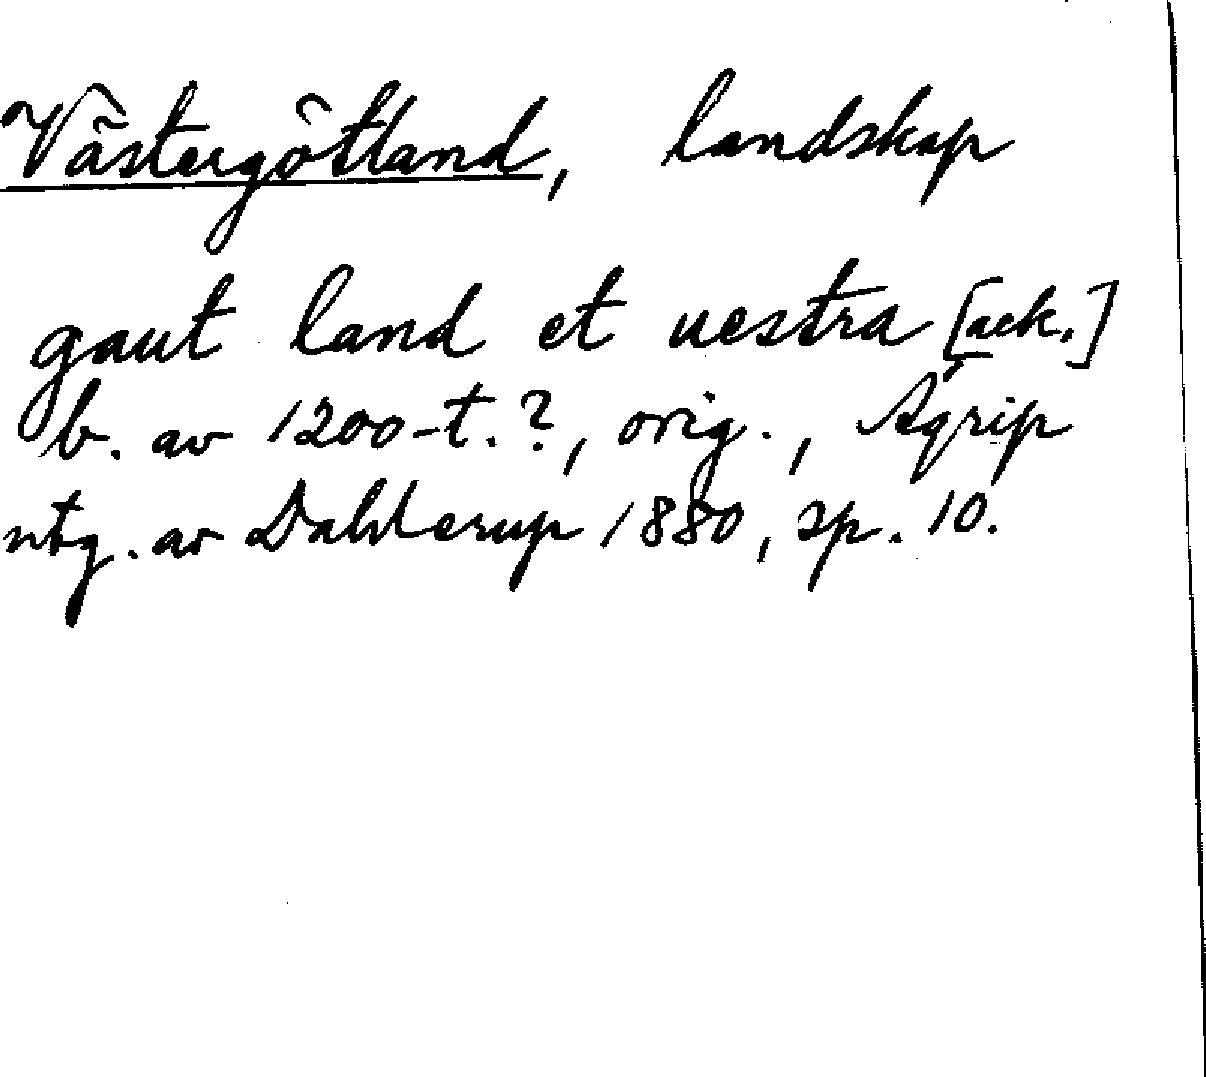 Västergötland, landskap
gaut land et uestra [ack.]
b. av 1200-t.?, orig., Ágrip
utg. av Dahlerup 1880, sp. 10.